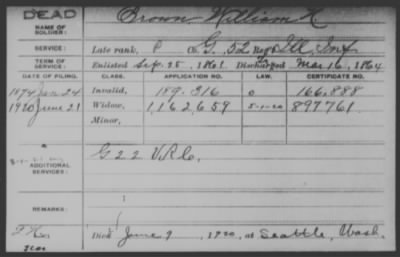 DEAD
NAME OF SOLDIER: Brown William
SERVICE: Late rank, P Co. G, 52 Reg't Ill. Inf
TERM OF SERVICE: Enlisted Sep. 25, 1861 Discharged Mar 16, 1864
DATE OF FILING. CLASS. APPLICATION NO. LAW. CERTIFICATE NO.
1874 Jan 24 Invalid, 189.316 0 166.888
1920 June 21 Widow, 1,162,659 5-1-20 897761
Minor,
ADDITIONAL SERVICES: G 22 V.R.C.
REMARKS:
Died June 9, 1920, at Seattle, Wash.